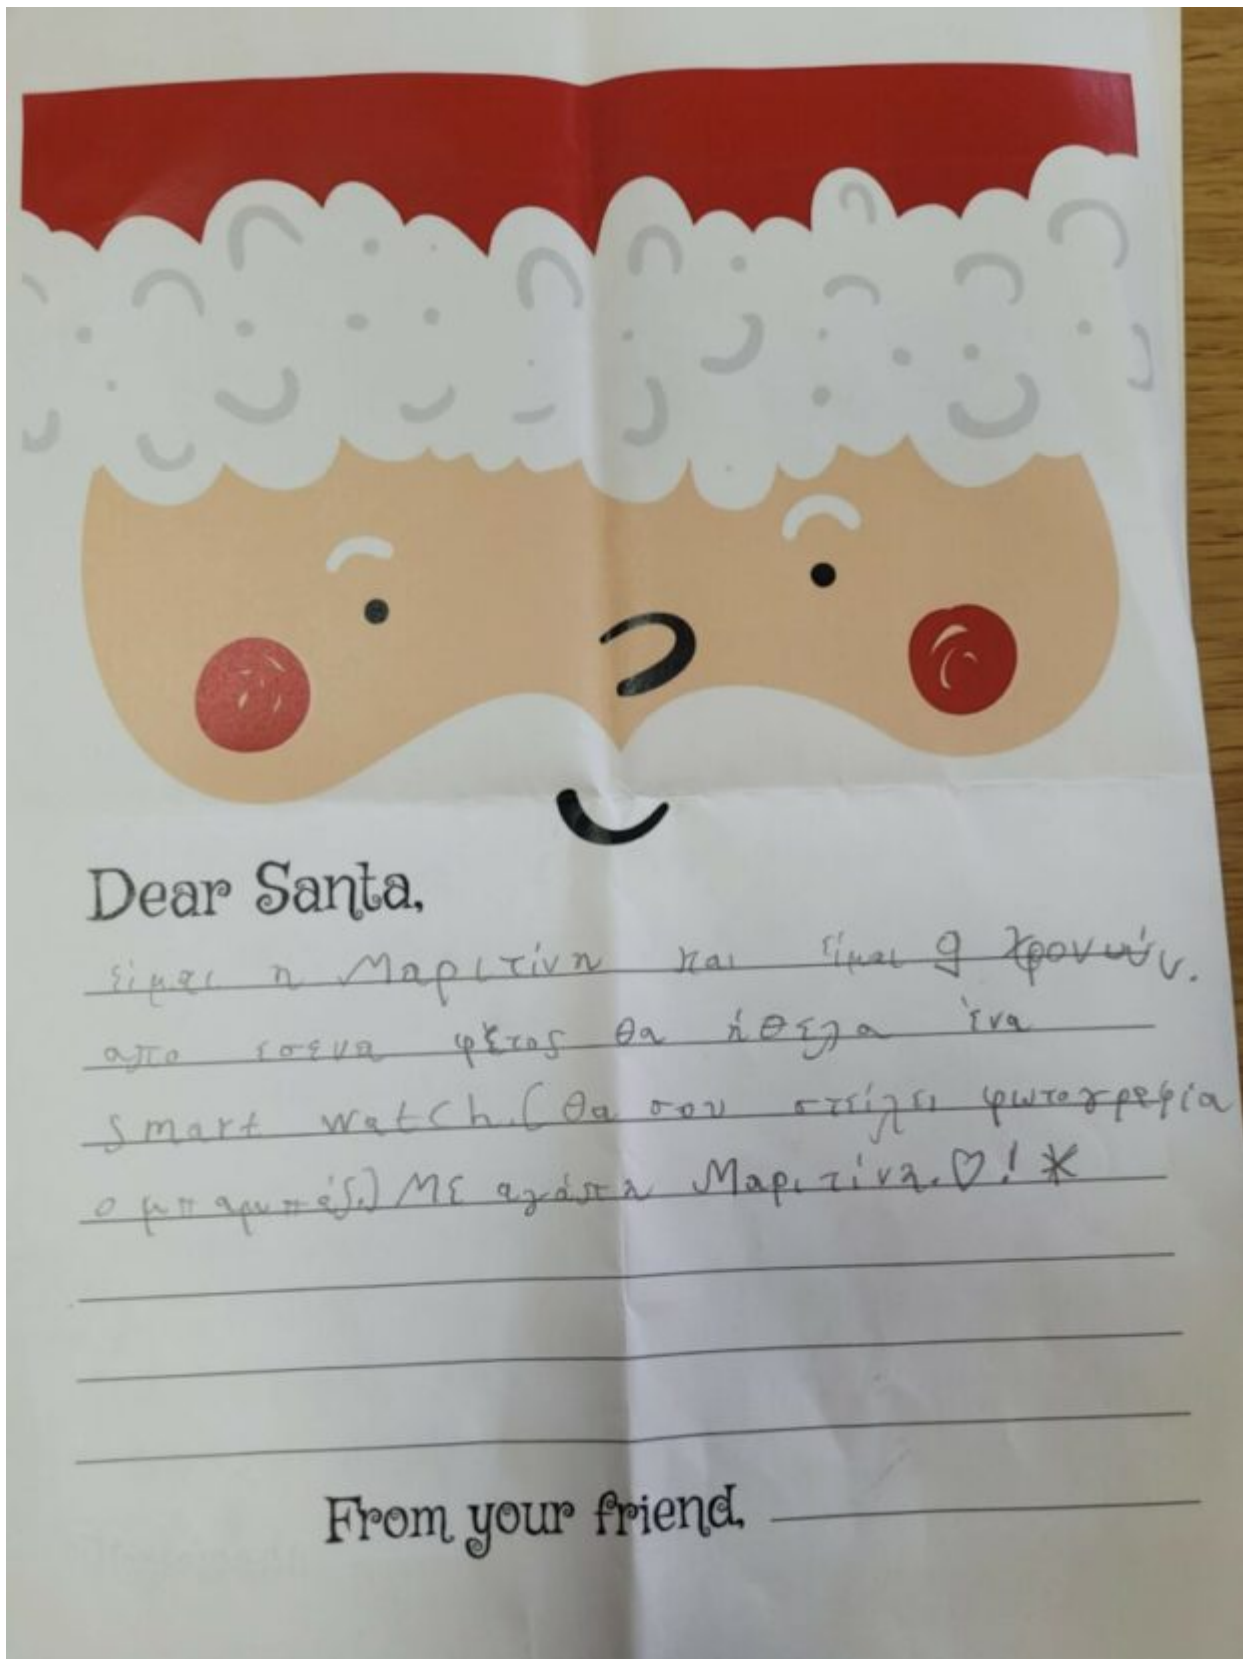 Dear Santa,
είμαι η Μαριτίνη και είμαι 9 χρονών.
απο εσενα φέτος θα ήθελα ένα
smart watch.(θα σου στείλει φωτογραφία
ο μπαμπάς.) Με αγάπη Μαριτίνη.♡! *
From your friend,